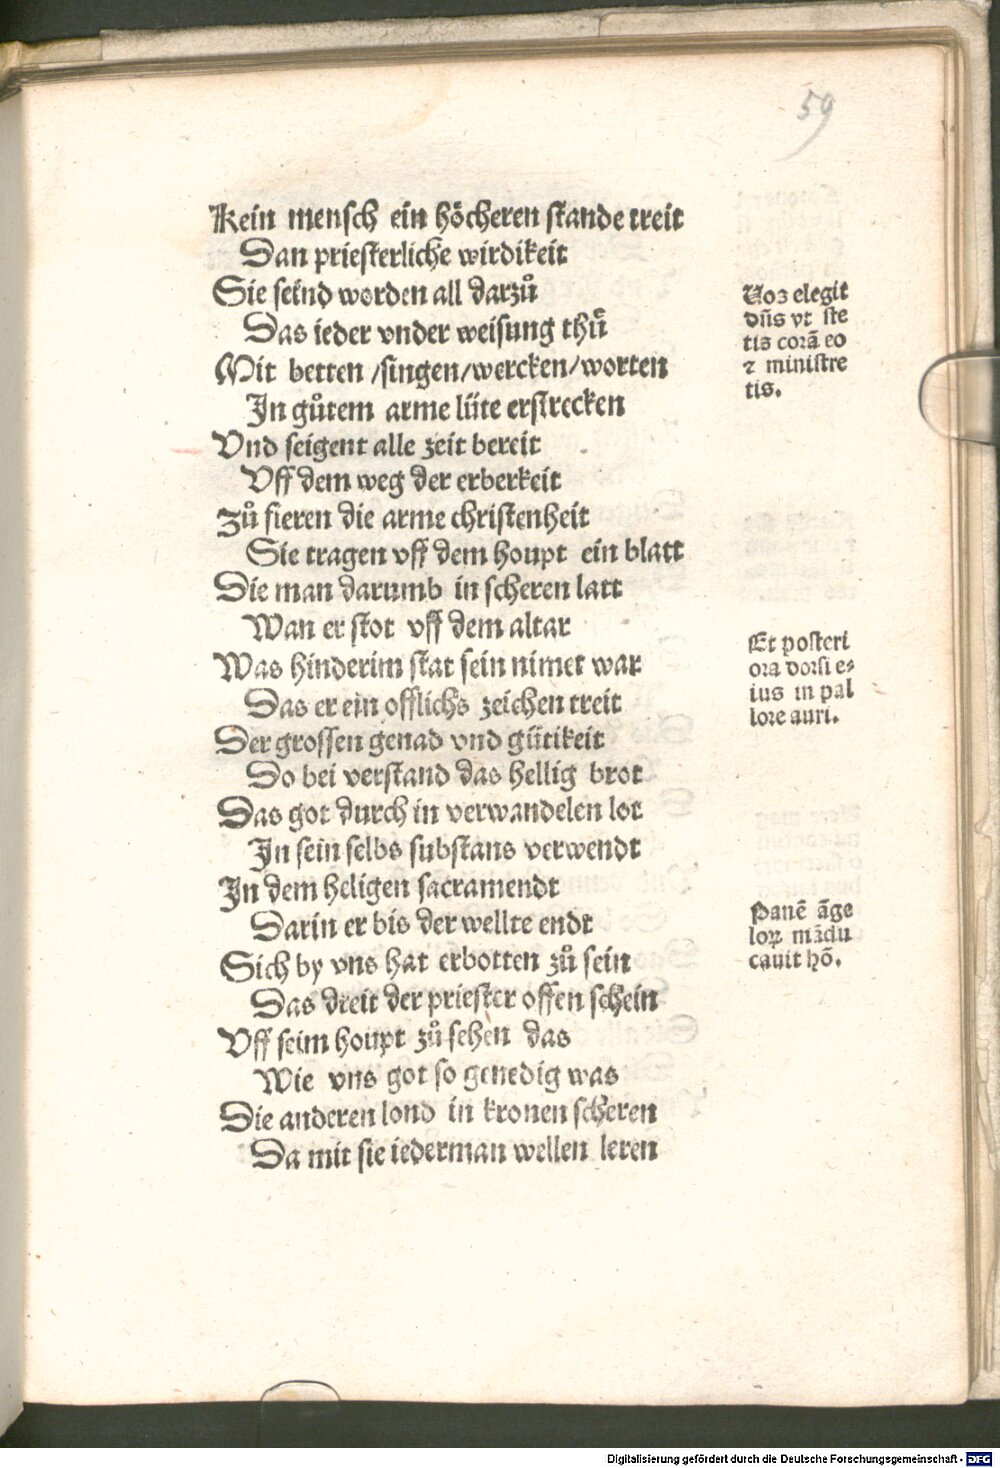 59
Kein mensch ein hoͤcheren stande treit
Dan priesterliche wirdikeit
Sie seind worden all darzuͦ
Das ieder vnder weisung thuͤ
Mit betten /singen/wercken/worten
In guͦtem arme lüte erstrecken
Vnd seigent alle zeit bereit
Vff dem weg der erberkeit
Zuͦ fieren die arme christenheit
Sie tragen vff dem houpt ein blatt
Die man darumb in scheren latt
Wan er stot vff dem altar
Was hinderim stat sein nimet war
Das er ein offlichs zeichen treit
Der grossen genad vnd gütikeit
Do bei verstand das hellig brot
Das got durch in verwandelen lot
In sein selbs substans verwendt
In dem heligen sacramendt
Darin er bis der wellte endt
Sich by vns hat erbotten zuͦ sein
Das dreit der priester offen schein
Vff seim houpt zuͦ sehen das
Wie vns got so genedig was
Die anderen lond in kronen scheren
Da mit sie iederman wellen leren
Uos elegit
dn̄s vt ste
tis corā eo
⁊ ministre
tis.
Et posteri
ora dorsi e⸗
ius in pal
lore auri.
Panē āge
loꝝ mādu
cauit hō.
Digitalisierung gefördert durch die Deutsche Forschungsgemeinschaft - DFG